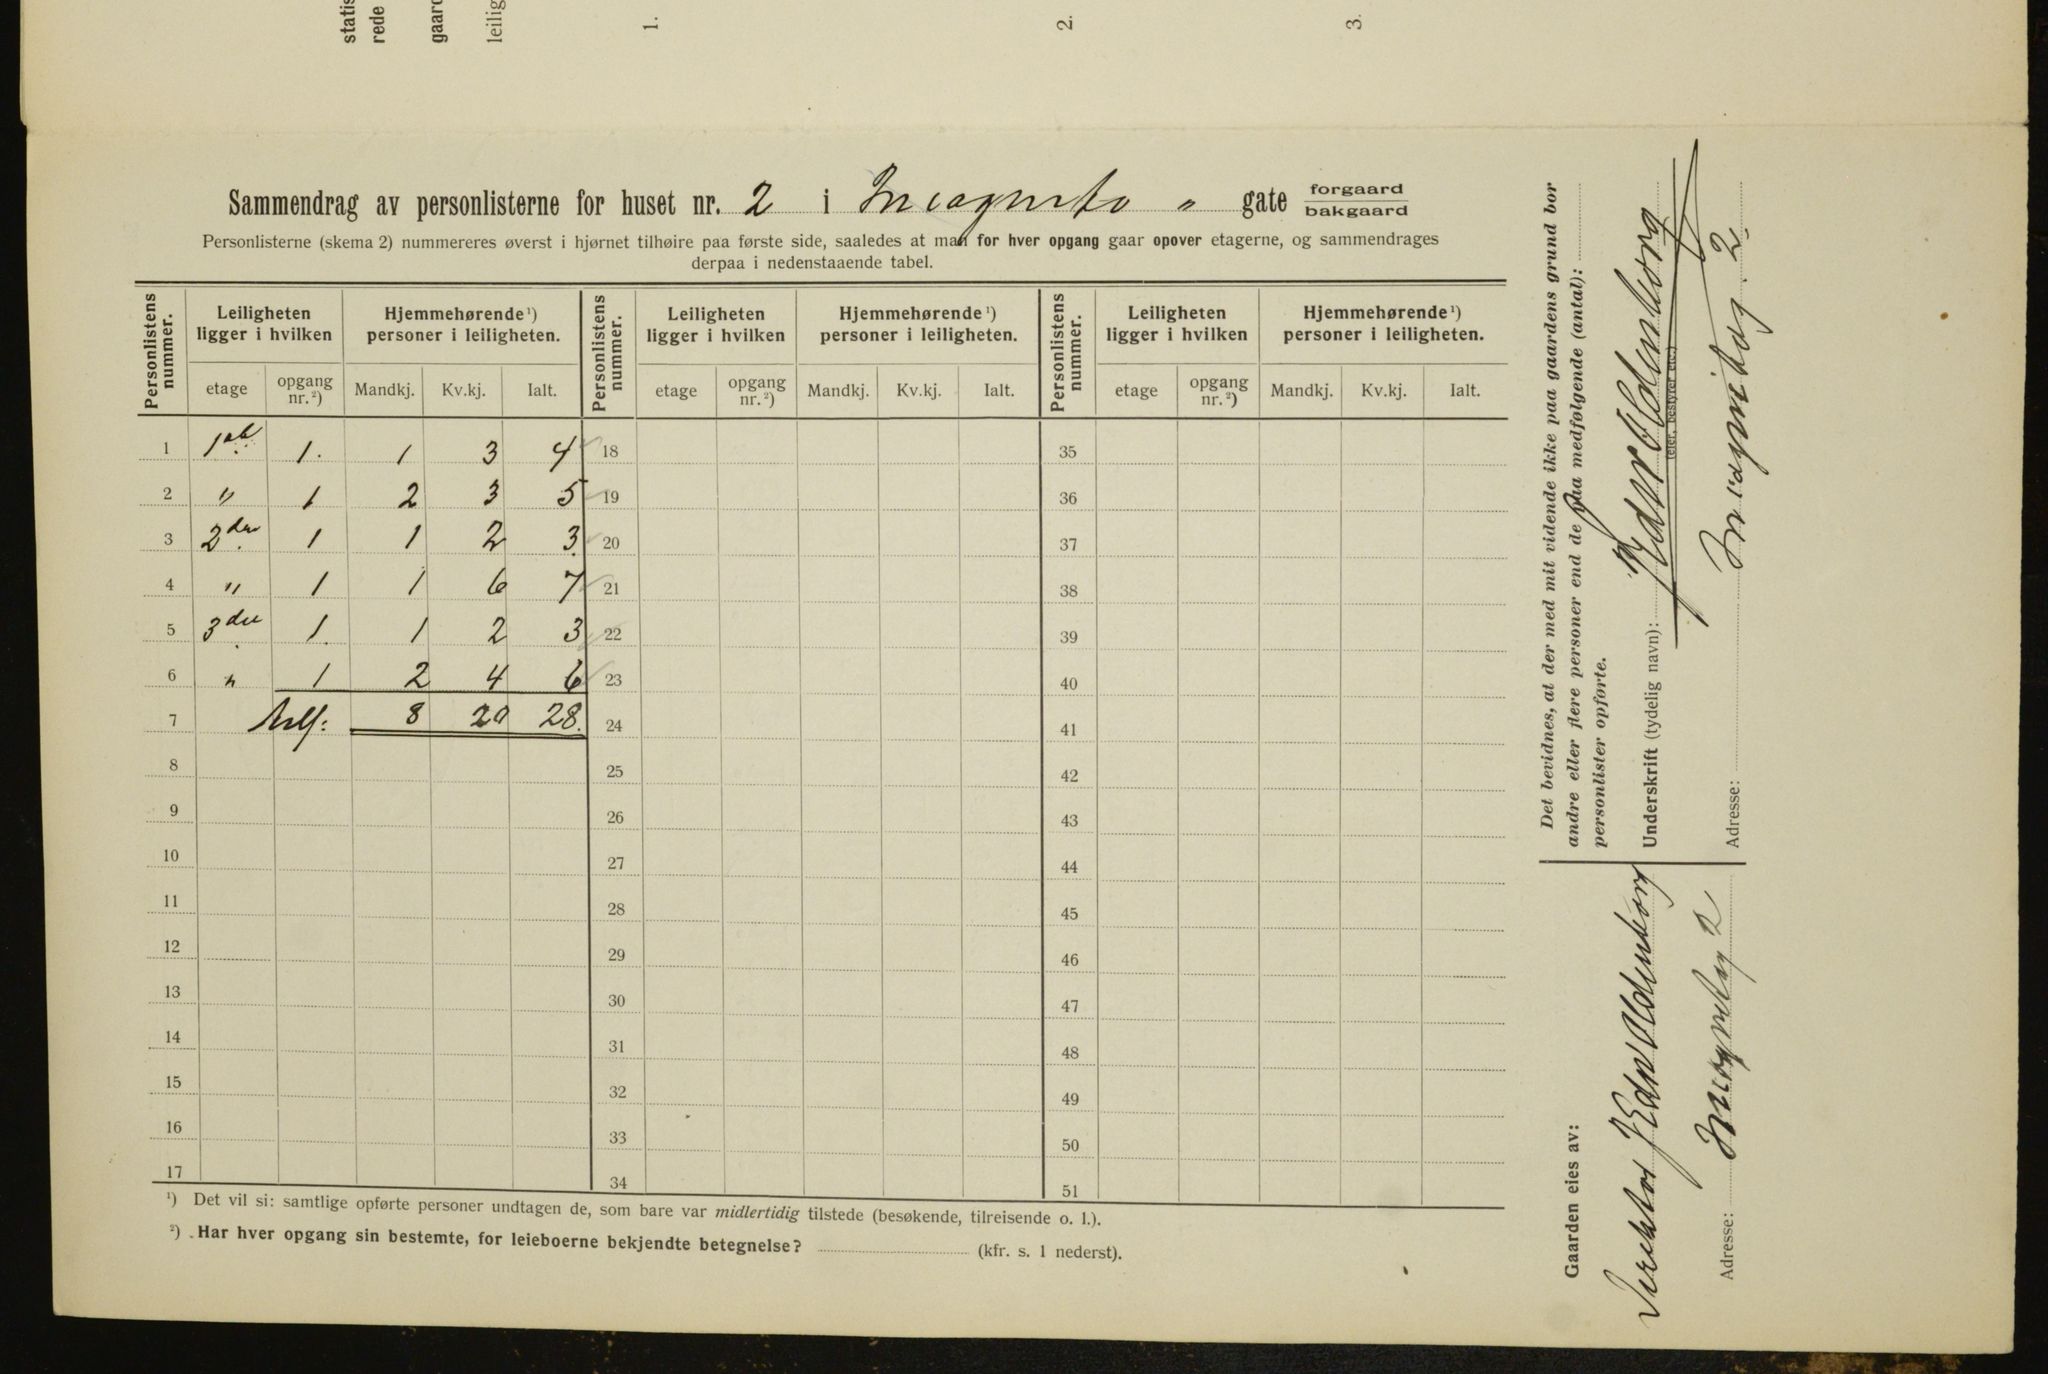 statis
rede
gaard
leilig
1.
2.
3.
Sammendrag av personlisterne for huset nr. 2 i Incognito " gate forgaard bakgaard
Personlisterne (skema 2) nummereres øverst i hjørnet tilhøire paa første side, saaledes at man for hver opgang gaar opover etagerne, og sammendrages
derpaa i nedenstaaende tabel.
Personlistens nummer. Leiligheten ligger i hvilken Hjemmehørende ¹) personer i leiligheten. Personlistens nummer. Leiligheten ligger i hvilken Hjemmehørende ¹) personer i leiligheten. Personlistens nummer. Leiligheten ligger i hvilken Hjemmehørende ¹) personer i leiligheten.
etage opgang nr.²) Mandkj. Kv.kj. Ialt. etage opgang nr.²) Mandkj. Kv.kj. Ialt. etage opgang nr.²) Mandkj. Kv.kj. Ialt.
1 1. 1 3 4 18 35
2 " 1 2 3 5 19 36
3 2den 1 1 2 3. 20 37
4 " 1 1 6 7 21 38
5 3die 1. 1 2 3 22 39
6 " 1 2 4 6 23 40
7 8 20 28. 24 41
8 25 42
9 26 43
10 27 44
11 28 45
12 29 46
13 30 47
14 31 48
15 32 49
16 33 50
17 34 51
¹) Det vil si: samtlige opførte personer undtagen de, som bare var midlertidig tilstede (besøkende, tilreisende o. l.).
²) Har hver opgang sin bestemte, for leieboerne bekjendte betegnelse? (kfr. s. 1 nederst).
Det bevidnes, at der med mit vidende ikke paa gaardens grund bor
andre eller flere personer end de paa medfølgende (antal):
personlister opførte.
Underskrift (tydelig navn):
(eier, bestyrer etc.)
Adresse: Incognitog. 2.
Gaarden eies av:
Direktør
Adresse: Incognitog 2